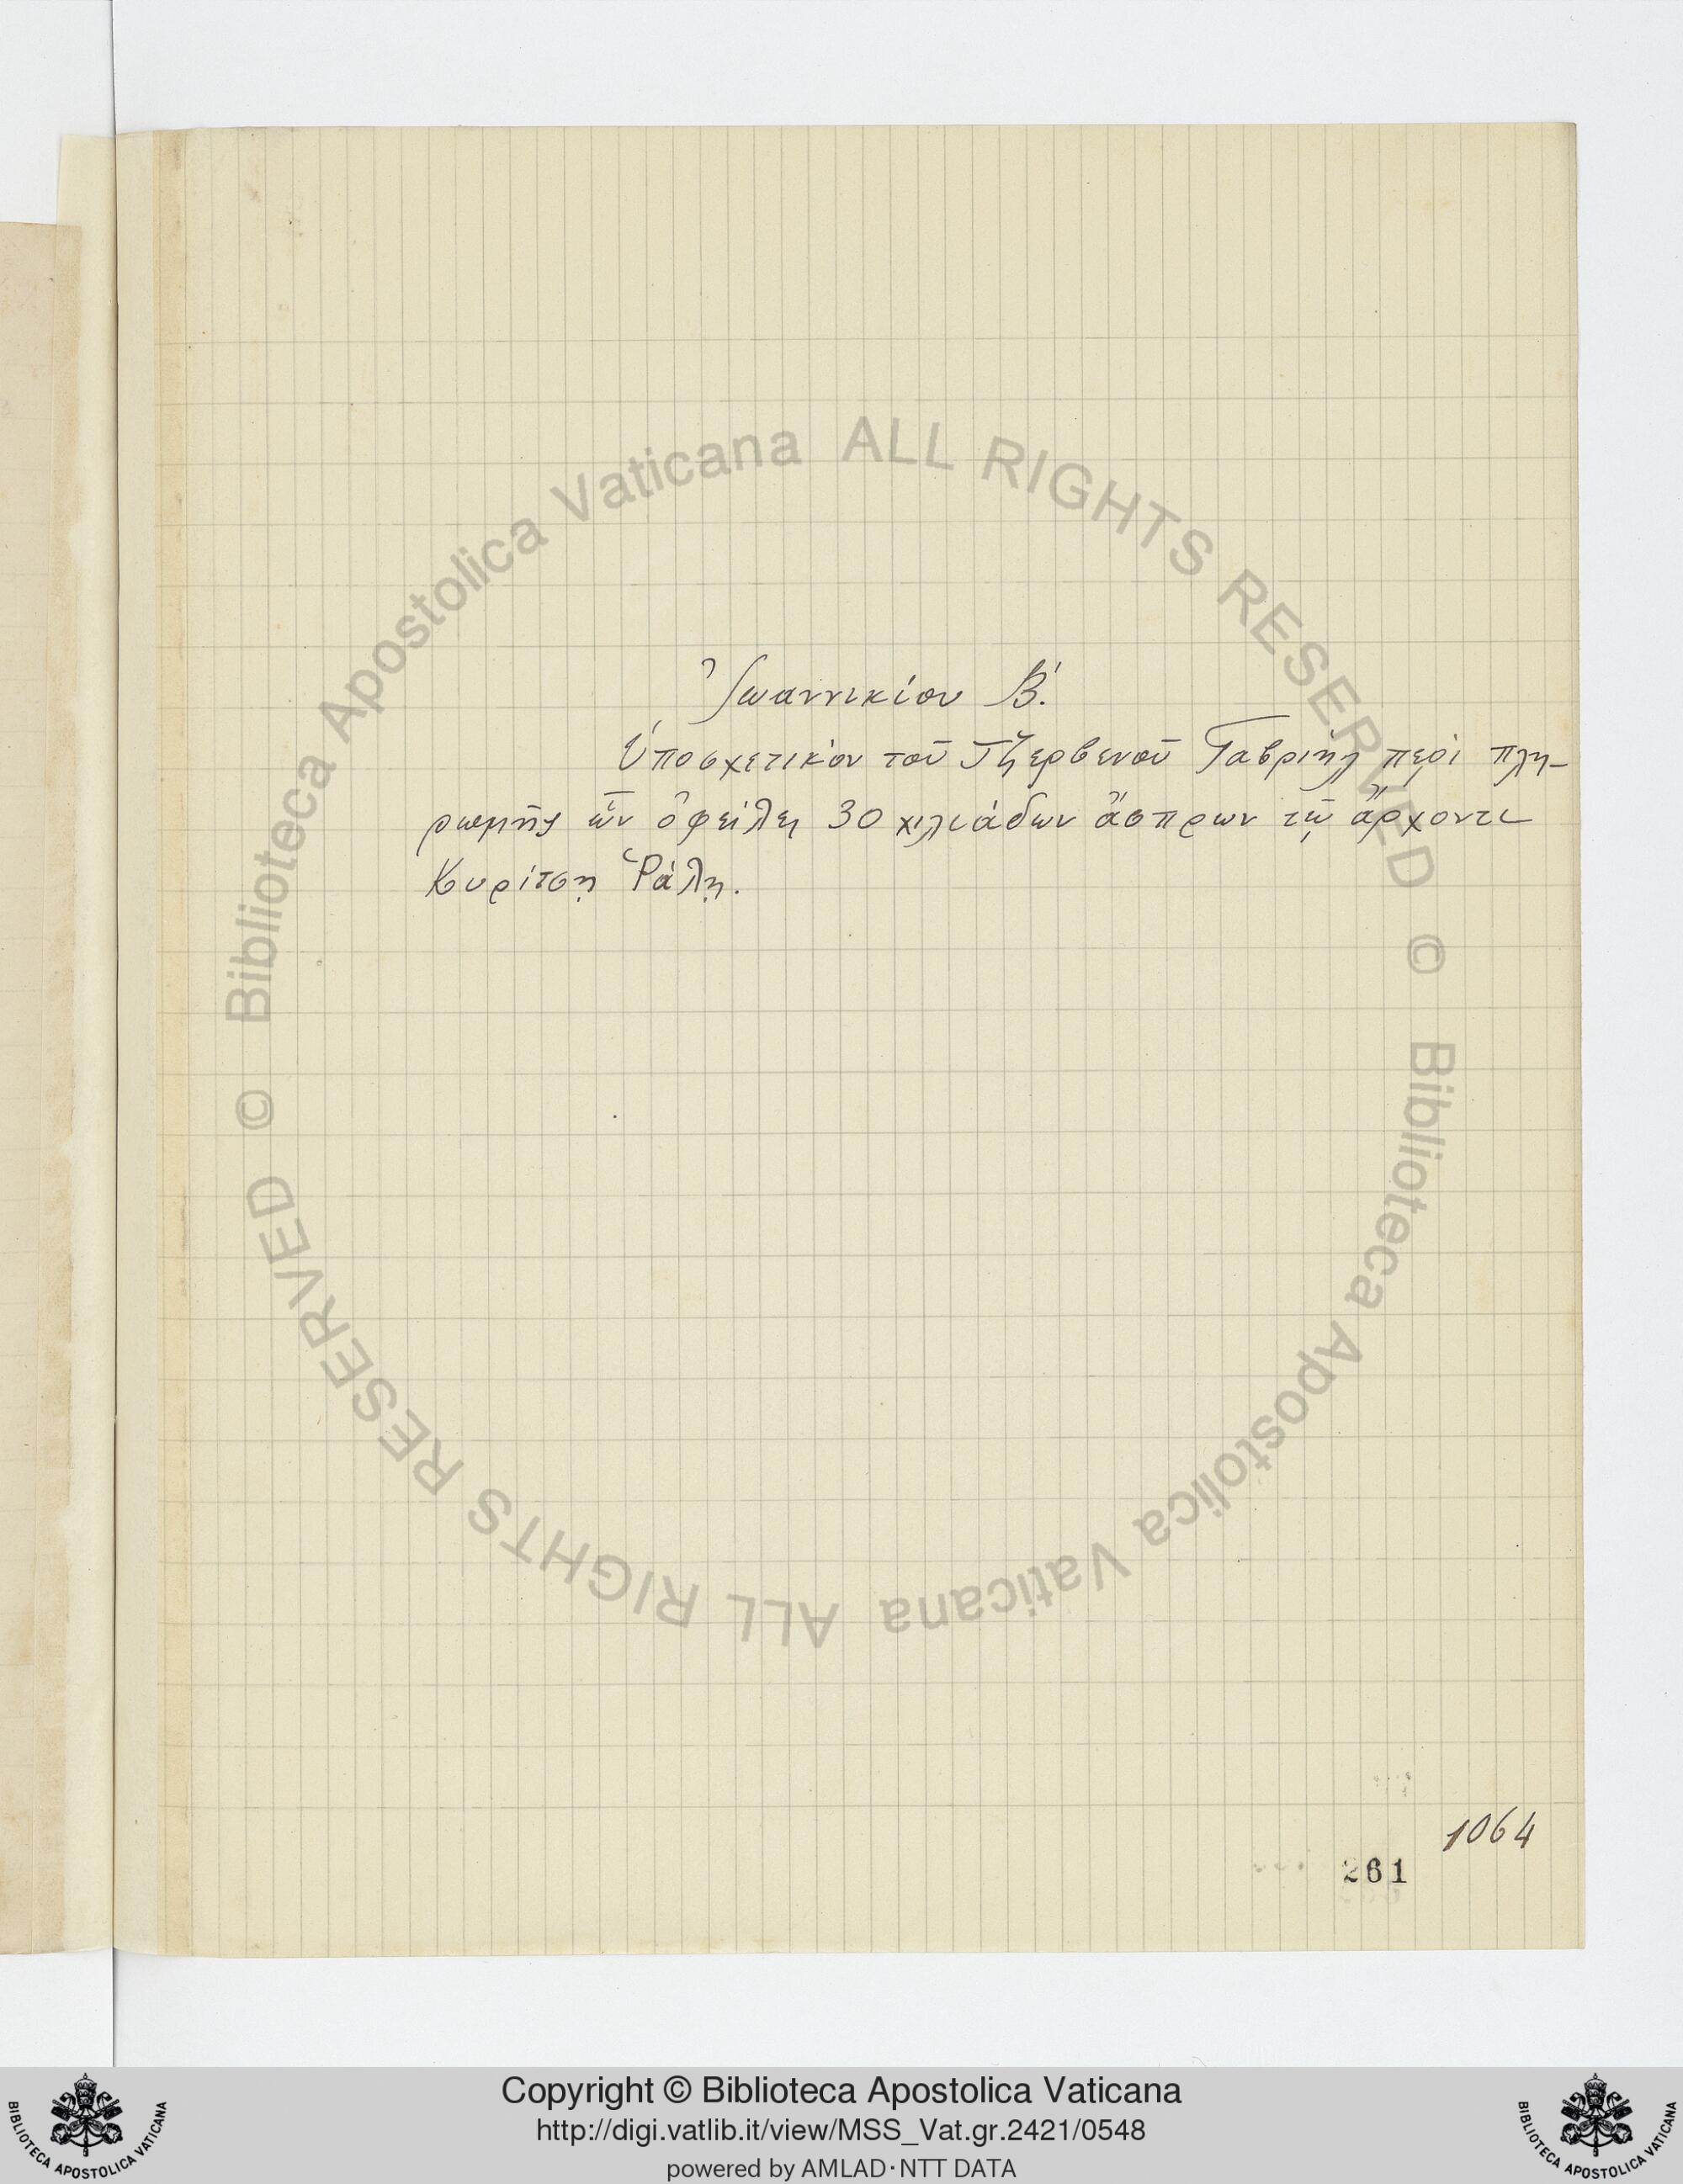 Ἰωαννικίου Β΄.
Ὑποσχετικὸν τοῦ Τζερβενοῦ Γαβριὴλ περὶ πλη-
ρωμῆς ὧν ὀφείλει 30 χιλιάδων ἄσπρων τῷ ἄρχοντι
Κυρίτσῃ Ῥάλῃ.
1064
261
© Biblioteca Apostolica Vaticana ALL RIGHTS RESERVED
© Biblioteca Apostolica Vaticana ALL RIGHTS RESERVED
Copyright © Biblioteca Apostolica Vaticana
http://digi.vatlib.it/view/MSS_Vat.gr.2421/0548
powered by AMLAD·NTT DATA
BIBLIOTECA APOSTOLICA VATICANA
BIBLIOTECA APOSTOLICA VATICANA